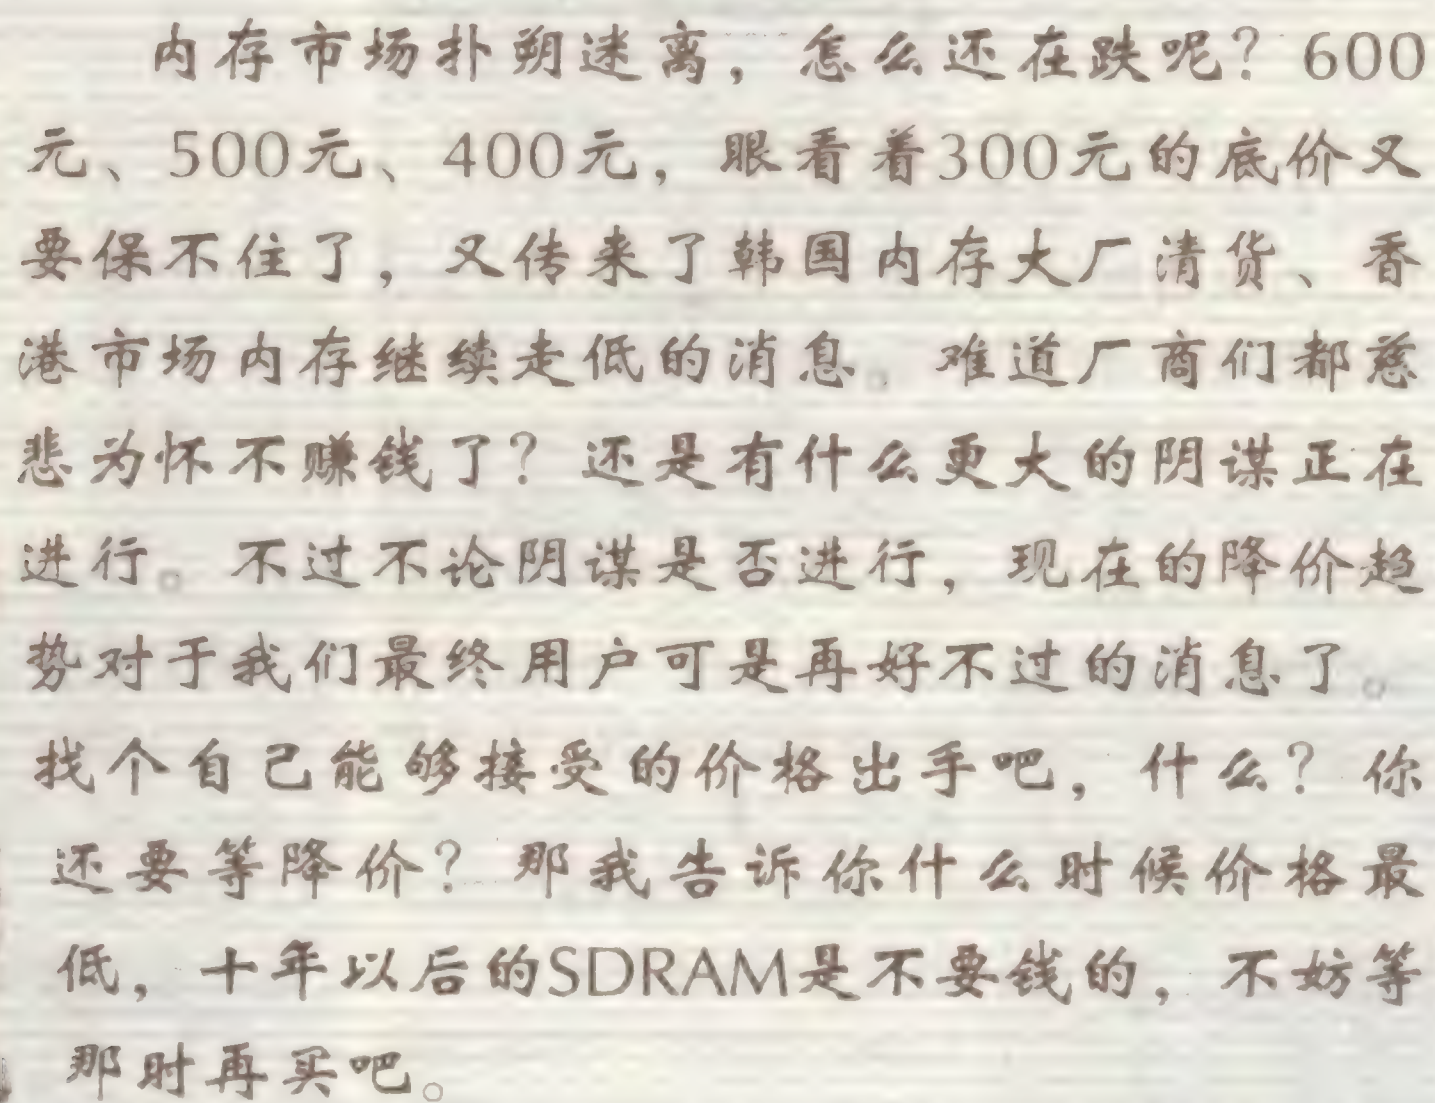 内存市场扑朔迷离，怎么还在跌呢？600
元、500元、400元，眼看着300元的底价又
要保不住了，又传来了韩国内存大厂清货、香
港市场内存继续走低的消息。难道厂商们都慈
悲为怀不赚钱了？还是有什么更大的阴谋正在
进行。不过不论阴谋是否进行，现在的降价趋
势对于我们最终用户可是再好不过的消息了。
找个自己能够接受的价格出手吧，什么？你
还要等降价？那我告诉你什么时候价格最
低，十年以后的SDRAM是不要钱的，不妨等
那时再买吧。